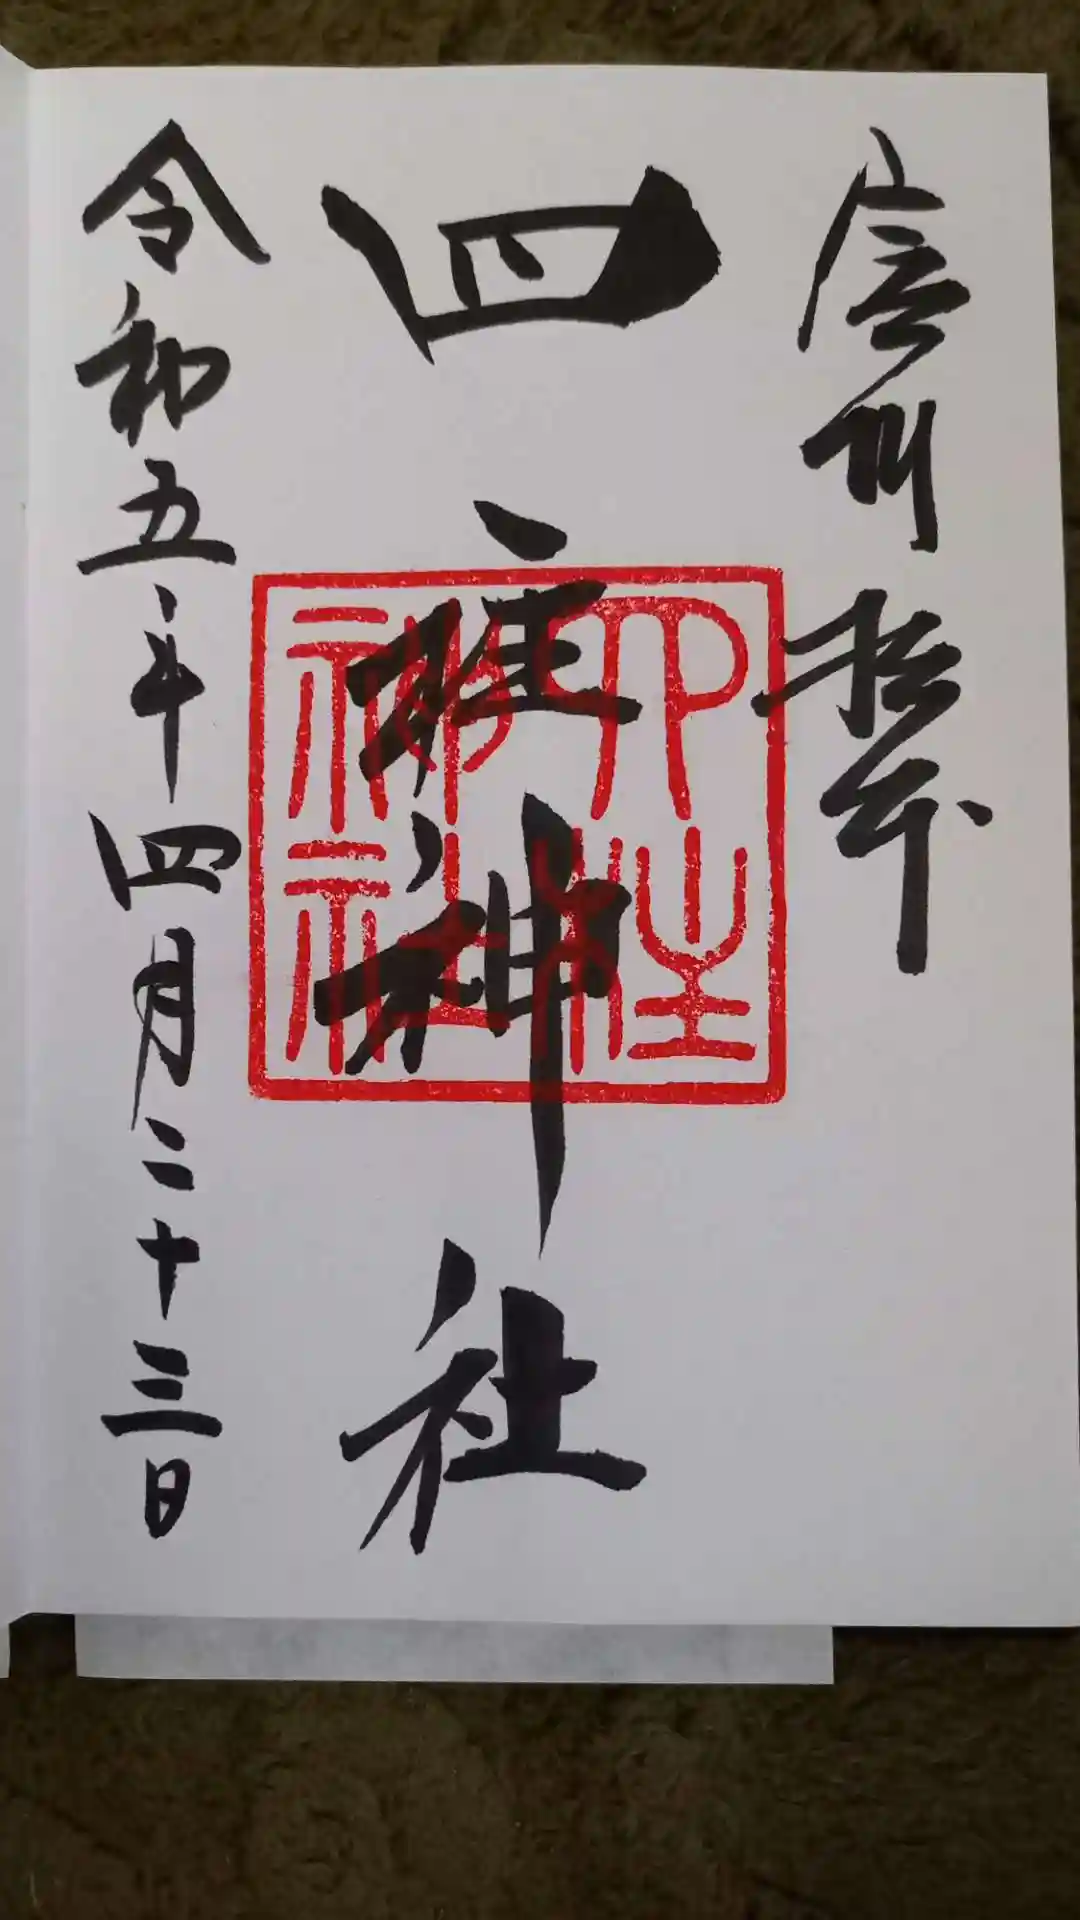 信州 松本
四柱神社
四柱神社
令和五年四月二十三日